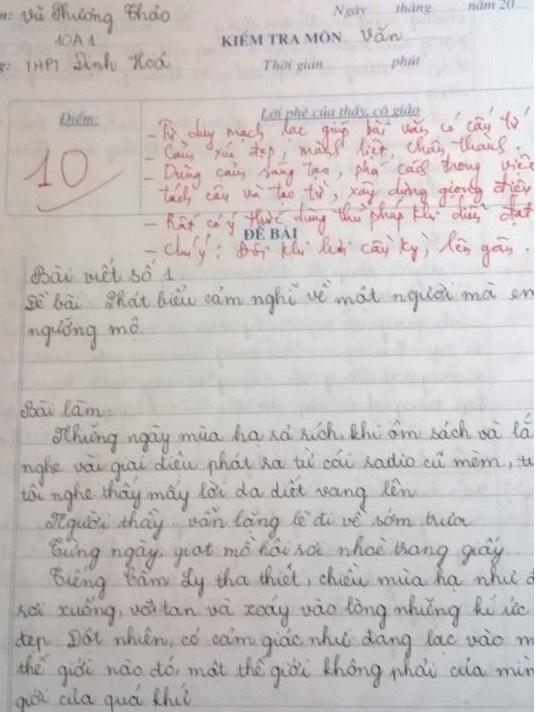 n: Vũ Phương Thảo
Ngày tháng năm 20
10A1
KIỂM TRA MÔN Văn
g: THPT Định Hoá
Thời gian phút
Điểm:
Lời phê của thầy, cô giáo
10
- Tư duy mạch lạc giúp bài văn có cấu tứ
- Cảm xúc đẹp, mãnh liệt, chân thành.
- Dùng câu sáng tạo, phá cách trong việc
tách câu và tạo từ, xây dựng giọng điệu
- Rất có ý thức dùng thủ pháp khi diễn đạt
ĐỀ BÀI
- chú ý: Đôi khi hơi cầu kỳ, lên gân.
Bài viết số 1.
Đề bài: Phát biểu cảm nghĩ về một người mà em
ngưỡng mộ.
Bài làm:
Những ngày mùa hạ rả rích, khi ôm sách và lắ
nghe vài giai điệu phát ra từ cái radio cũ mèm, t
tôi nghe thấy mấy lời da diết vang lên
Người thầy vẫn lặng lẽ đi về sớm trưa
Từng ngày, giọt mồ hôi rơi nhoè trang giấy
Tiếng Cẩm Ly tha thiết, chiều mùa hạ như đ
rơi xuống, vỡ tan và xoáy vào lòng những kí ức
đẹp. Đột nhiên, có cảm giác như đang lạc vào m
thế giới nào đó, một thế giới không phải của mìn
giới của quá khứ